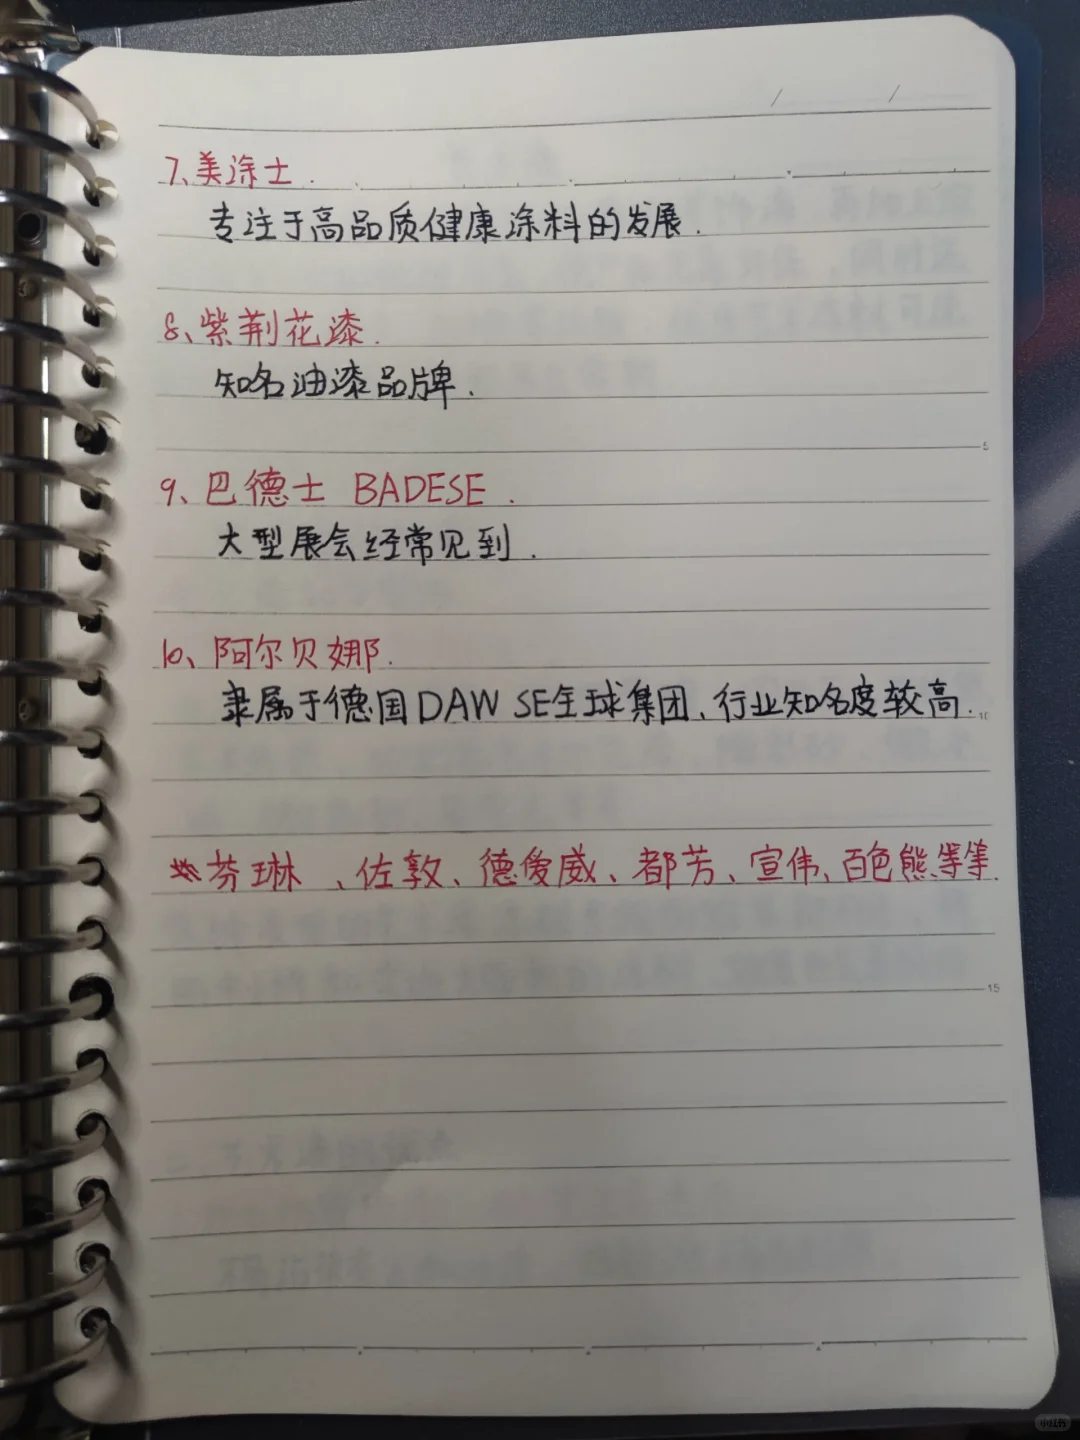 7、美涂士.
专注于高品质健康涂料的发展.
8、紫荆花漆.
知名油漆品牌.
5
9、巴德士 BADESE.
大型展会经常见到.
10、阿尔贝娜.
隶属于德国DAW SE全球集团、行业知名度较高.
10
芬琳、佐敦、德爱威、都芳、宣伟、百色熊等等.
15
小红书